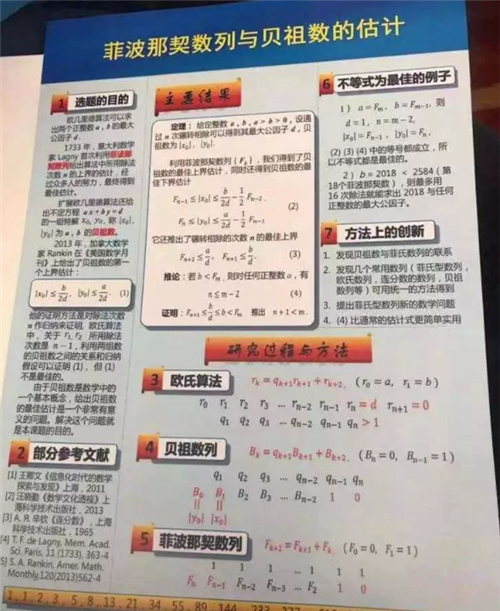 菲波那契数列与贝祖数的估计
1 选题的目的
欧几里德算法可以求出两个正整数 a, b 的最大公因子 d。
1733 年，意大利数学家 Lagny 首次利用菲波那契数列给出算法中所用除法次数 n 的上界的估计，经过众多人的努力，最终得到最佳估计。
扩展欧几里德算法还给出不定方程 ax + by = d 的一组特解 x₀, y₀，称 |x₀|, |y₀| 为 a, b 的贝祖数。
2013 年，加拿大数学家 Rankin 在《美国数学月刊》上给出了贝祖数的第一个上界估计：
|x₀| ≤ b/2d, |y₀| ≤ a/2d (1)
他的证明方法是对除法次数 n 作归纳来证明。欧氏算法中，关于 r₁, r₂ 所用除法次数是 n − 1，利用两组数的贝祖数之间的关系和归纳假设可以证明 (1)，但 (1) 不是最佳的。
由于贝祖数是数学中的一个基本概念，给出贝祖数的最佳估计是一个非常有意义的问题。解决这个问题就是本课题的目的。
2 部分参考文献
[1] 王 《信息化时代的数学探索与发现》上海，2011
[2] 汪晓勤《数学文化透视》上海科学技术出版社，2013
[3] A. Я. 辛钦《连分数》，上海科学技术出版社，1965
[4] T. F. de Lagny, Mem. Acad. Sci. Paris, 11 (1733), 363-4
[5] S. A. Rankin, Amer. Math. Monthly,120(2013)562-4
主要结果
定理：给定整数 a, b, a > b > 0，设通过 n 次辗转相除可以得到其最大公因子 d，贝祖数为 |x₀|, |y₀|。
利用菲波那契数列 { Fₖ }，我们得到了贝祖数的最佳上界估计，同时还得到贝祖数的最佳下界估计
Fₙ₋₁ ≤ |x₀| ≤ b/2d − 1/2 Fₙ₋₂,
(2)
Fₙ ≤ |y₀| ≤ a/2d − 1/2 Fₙ₋₁.
它还推出了辗转相除的次数 n 的最佳上界
Fₙ₊₂ ≤ a/d, Fₙ₊₁ ≤ b/d. (3)
推论：若 b < Fₘ，则对任何正整数 a，有
n ≤ m − 2 (4)
证明：Fₙ₊₁ ≤ b/d ≤ b < Fₘ 推出 n + 1 < m.
研究过程与方法
3 欧氏算法 rₖ = qₖ₊₁rₖ₊₁ + rₖ₊₂, (r₀ = a, r₁ = b)
r₀ r₁ r₂ r₃ ... rₙ₋₂ rₙ₋₁ rₙ = d rₙ₊₁ = 0
q₁ q₂ q₃ ... qₙ₋₂ qₙ₋₁ qₙ > 1
4 贝祖数列 Bₖ = qₖ₊₁Bₖ₊₁ + Bₖ₊₂, (Bₙ = 0, Bₙ₋₁ = 1)
q₁ q₂ q₃ ... qₙ₋₂ qₙ₋₁ qₙ
B₀ B₁ B₂ B₃ ... Bₙ₋₂ 1 0
|| ||
|y₀| |x₀|
5 菲波那契数列 Fₖ₊₂ = Fₖ₊₁ + Fₖ, (F₀ = 0, F₁ = 1)
1 1 1 ... 1 1 1
Fₙ Fₙ₋₁ Fₙ₋₂ Fₙ₋₃ ... F₂ 1 0
6 不等式为最佳的例子
1 ) a = Fₘ, b = Fₘ₋₁，则
d = 1, n = m − 2,
|x₀| = Fₙ₋₁ , |y₀| = Fₙ.
(2) (3) (4) 中的等号都成立，所以不等式都是最佳的。
2 ) b = 2018 < 2584 ( 第18个菲波那契数 )，则最多用 16 次除法就能求出 2018 与任何正整数的最大公因子。
7 方法上的创新
1. 发现贝祖数与菲氏数列的联系
2. 发现几个常用数列 ( 菲氏型数列，欧氏数列，连分数的数列，贝祖数列等 ) 可用统一的方法得到
3. 提出菲氏型数列新的数学问题
4. (4) 比通常的估计式更简单实用
1, 1, 2, 3, 5, 8, 13, 21, 34, 55, 89, 144, 233, 377